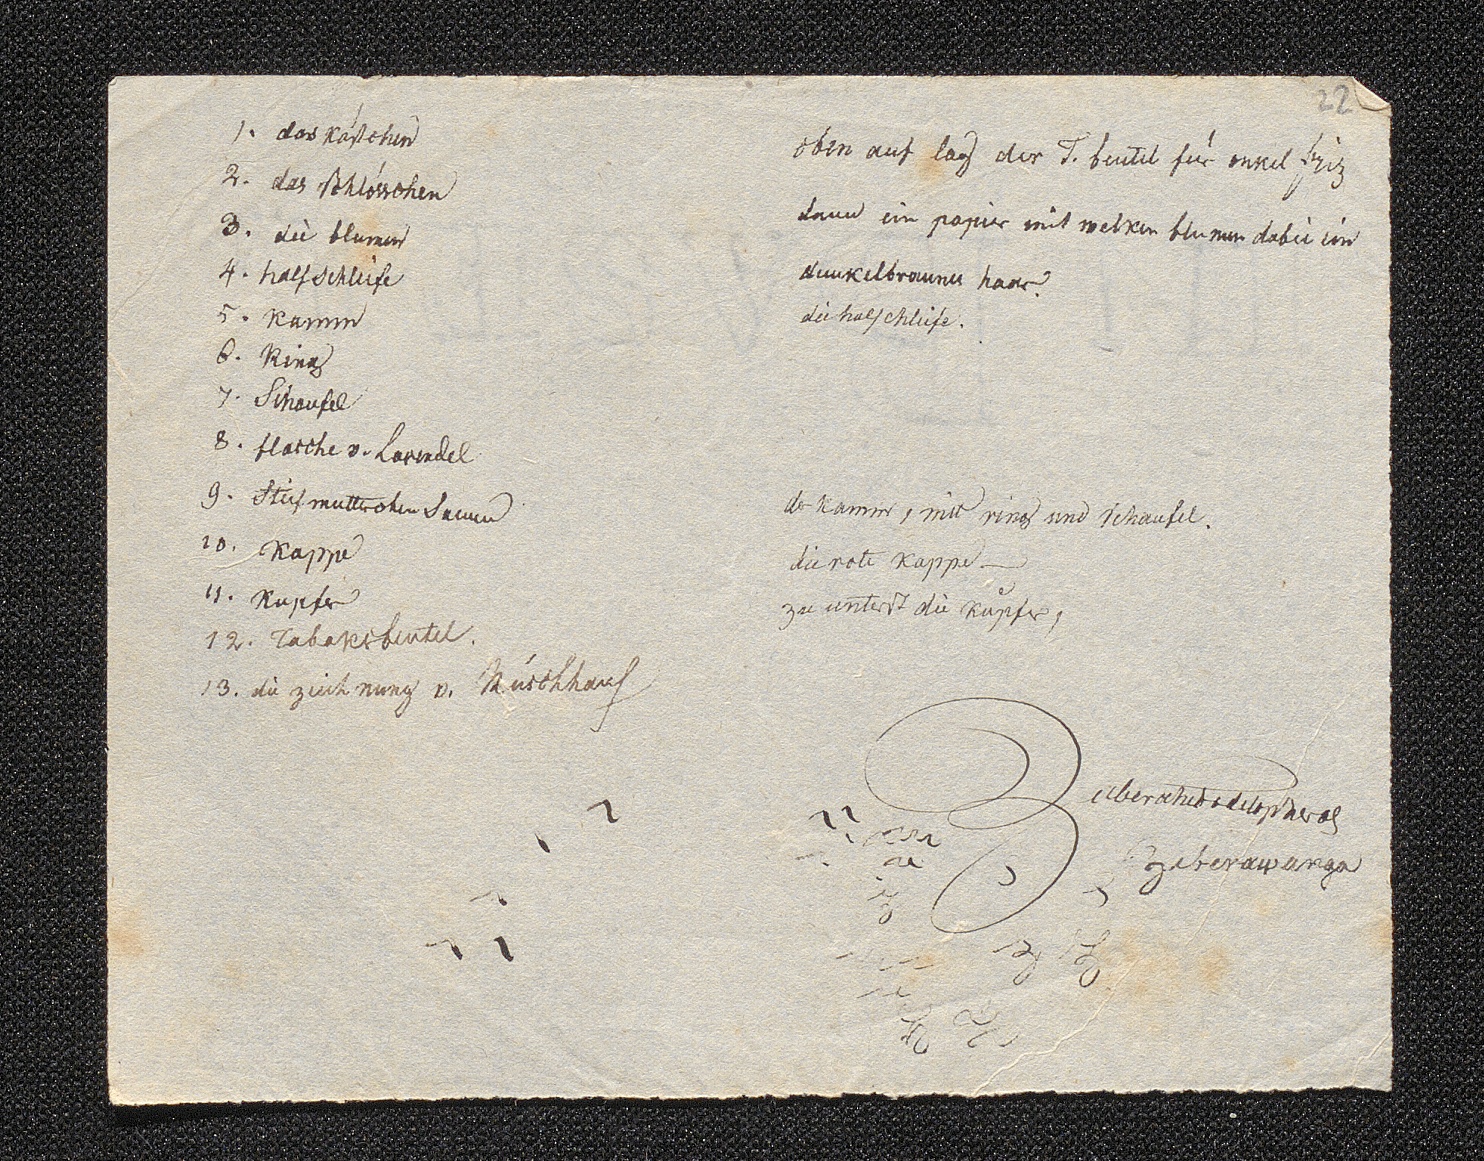 22
1. das kästchen
2. das schlösschen
3. die blumen
4. halsschleife
5. Kamm
6. Ring
7. Schaufel
8. flasche v. Lavendel
9. Stiefmütterchen Samen
10. Kappe
11. Kupfer
12. Tabaksbeutel.
13. die zeichnung v. Rüschhaus
oben auf lag der T. beutel für onkel friz
dann ein papier mit welken blumen dabei ein
dunkelbraunes haar.
die halsschleife.
der Kamm, mit ring und schaufel.
die rote Kappe
zu unterst die kupfer,